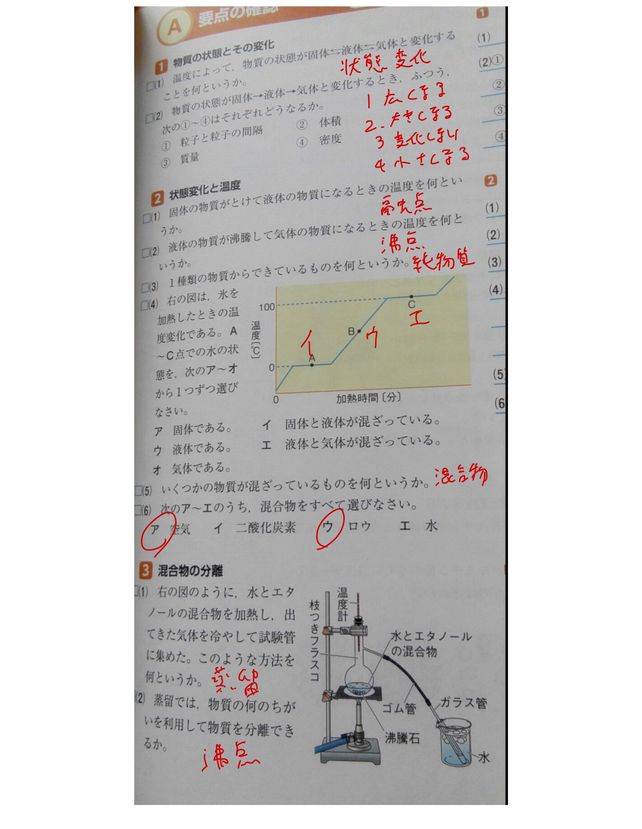 A 要点の確認
1 物質の状態とその変化
1
□(1) 温度によって，物質の状態が固体⇄液体⇄気体と変化する
ことを何というか。
状態変化
(1)
□(2) 物質の状態が固体→液体→気体と変化するとき，ふつう，
次の①〜④はそれぞれどうなるか。
① 粒子と粒子の間隔 ② 体積
③ 質量 ④ 密度
1 広くなる
2. 大きくなる
3 変化しない
4 小さくなる
(2)①
②
③
④
2 状態変化と温度
2
□(1) 固体の物質がとけて液体の物質になるときの温度を何とい
うか。
融点
(1)
□(2) 液体の物質が沸騰して気体の物質になるときの温度を何と
いうか。
沸点
(2)
□(3) 1種類の物質からできているものを何というか。純物質
(3)
□(4) 右の図は，氷を
加熱したときの温
度変化である。A
〜C点での水の状
態を，次のア〜オ
から1つずつ選び
なさい。
(4)
温度〔℃〕
100
0
0
加熱時間〔分〕
A
B
C
イ
ウ
エ
ア 固体である。 イ 固体と液体が混ざっている。
ウ 液体である。 エ 液体と気体が混ざっている。
オ 気体である。
(5)
(6)
□(5) いくつかの物質が混ざっているものを何というか。混合物
□(6) 次のア〜エのうち，混合物をすべて選びなさい。
ア 空気 イ 二酸化炭素 ウ ロウ エ 水
3 混合物の分離
□(1) 右の図のように，水とエタ
ノールの混合物を加熱し，出
てきた気体を冷やして試験管
に集めた。このような方法を
何というか。蒸留
(2) 蒸留では，物質の何のちが
いを利用して物質を分離でき
るか。
沸点
温度計
枝つきフラスコ
水とエタノール
の混合物
ゴム管
ガラス管
沸騰石
水